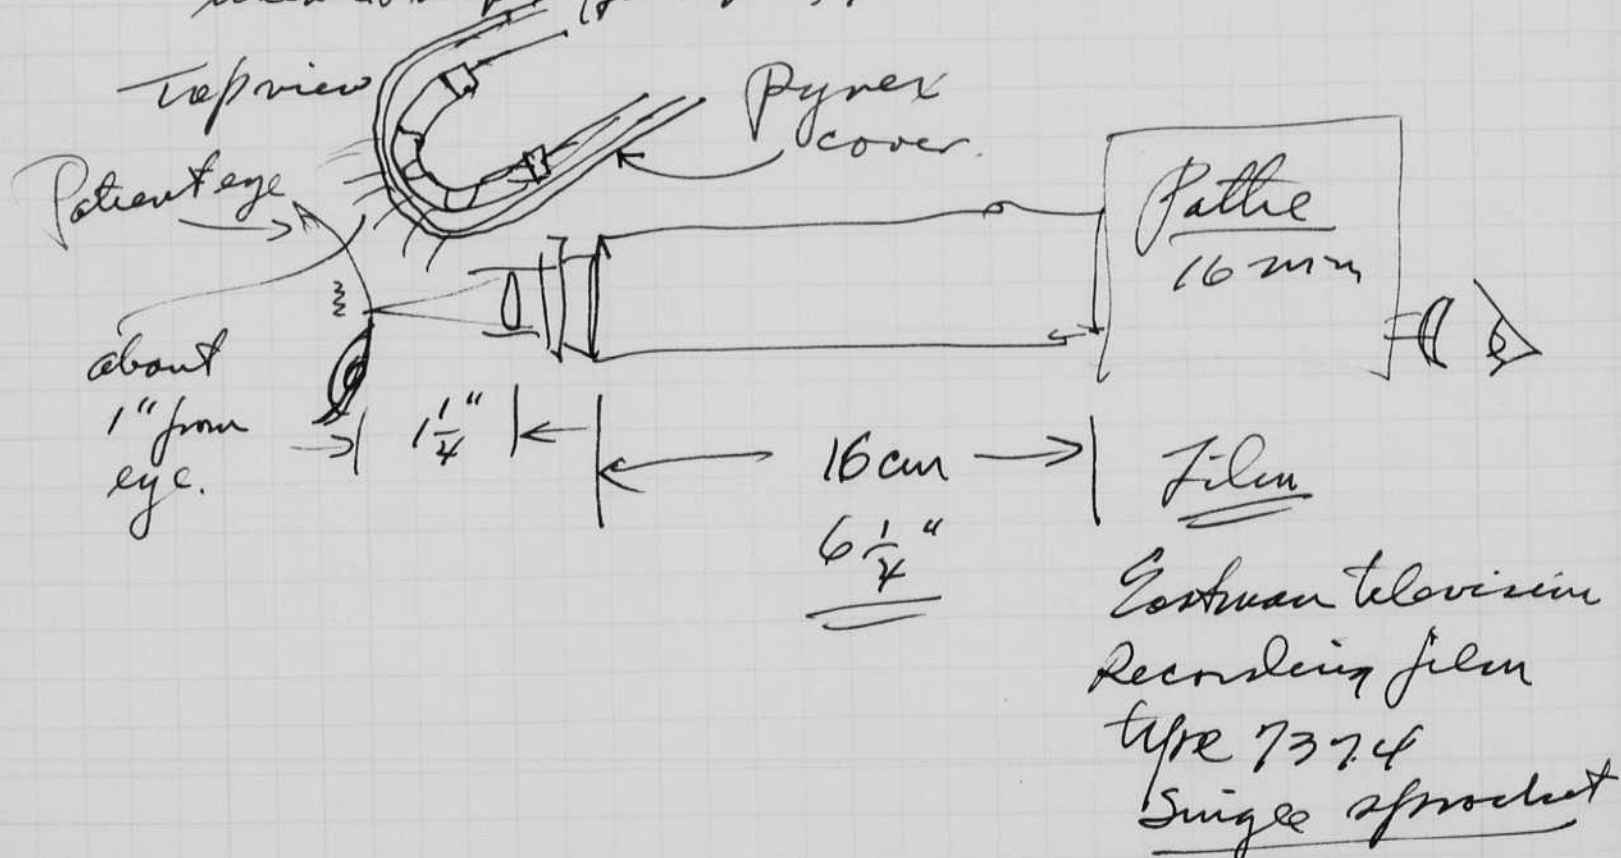 Top view
Pyrex
cover.
Patient eye
Pathe
16 mm
about
1" from
eye.
1 1/4"
16 cm
6 1/4"
Film
Eastman television
Recording film
type 7374
Single sprocket